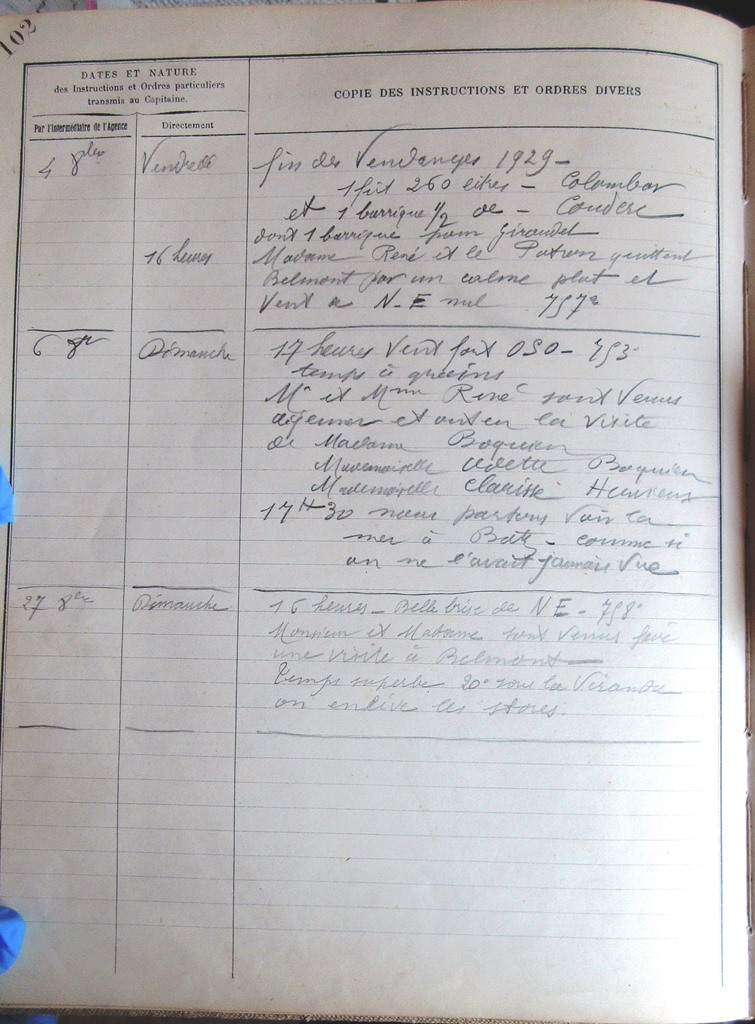 102
DATES ET NATURE
des Instructions et Ordres particuliers
transmis au Capitaine.
COPIE DES INSTRUCTIONS ET ORDRES DIVERS
Par l'Intermédiaire de l'Agence
Directement
4 8bre Vendredi fin des Vendanges 1929 –
1 fût 260 litres – Colombar
et 1 barrique 1/2 de – Couderc
dont 1 barrique pour Giraudet
16 heures Madame René et le Patron quittent
Belmont par un calme plat et
Vent de N.E nul 757
6 8bre Dimanche 17 heures Vent fort OSO – 753
temps à grains
Mr et Mme René sont Venus
déjeuner et ont eu la visite
de Madame Boquien
Mademoiselle Odette Boquien
Mademoiselle Clarisse
17H30 nous partons Voir la
mer à Batz – comme si
on ne l'avait jamais Vue
27 8bre Dimanche 16 heures – Belle brise de NE – 758
Monsieur et Madame sont Venus faire
une visite à Belmont –
Temps superbe 20° sous la Viranda
on enlève les stores.